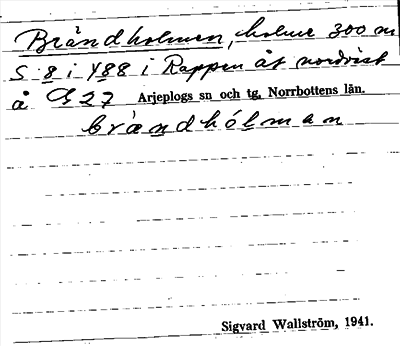 Brändholmen, holme 300 m
S 8 i Y88 i Rappen åt nordväst
å G27 Arjeplogs sn och tg, Norrbottens län.
brändhólman
Sigvard Wallström, 1941.